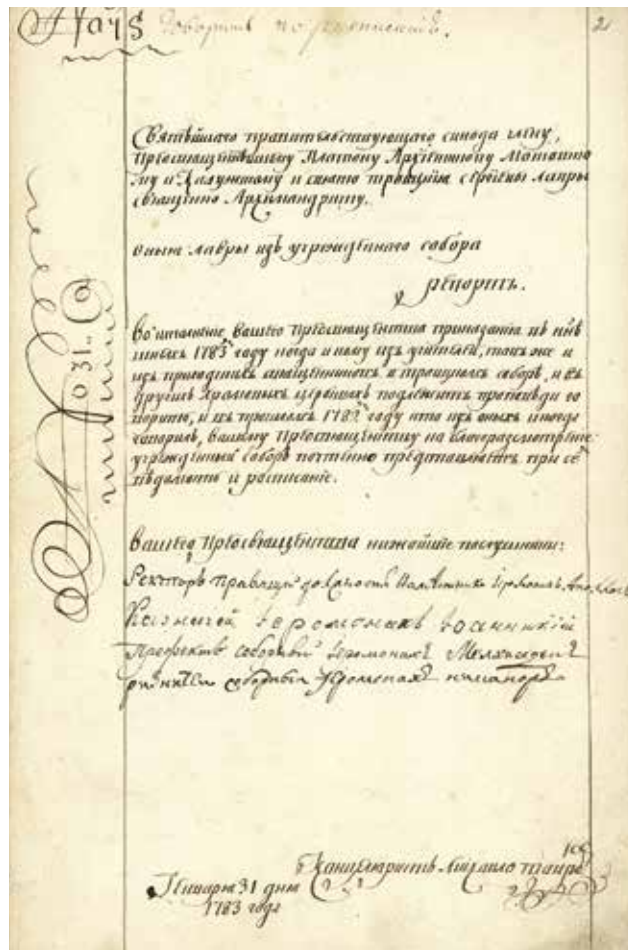 Говорить по росписанию.
2
Святѣйшаго правительствующаго синода члену,
преосвященнѣйшему Платону Архіепископу Московско
му и Калужскому и свято троицкія сергіевы лавры
священно Архимандриту.
оныя лавры изъ учрежденнаго собора
репортъ.
Во исполненіе вашего преосвященства приказанія въ нынѣ
1783 году когда и кому изъ учителей, такъ же и
изъ приходскихъ священниковъ в троицкомъ соборѣ, и въ
другихъ храмовыхъ церквахъ подлежитъ проповѣди го
ворить, и въ прошломъ 1782 году кто изъ оныхъ когда
говорилъ, вашему преосвященству на благоразсмотрѣніе
учрежденный соборъ почтенно представляетъ при се
вѣдомость и росписаніе.
вашего преосвященства нижайшіе послушники:
Ректоръ правящій должность намѣстника іеромонахъ
Казначей іеромонахъ Іоанникій
Префектъ соборный іеромонахъ Мелхиседекъ
ризничей соборный іеромонахъ никаноръ
№ 31
Канцеляристъ Михайло
Генваря 31 дня
1783 года